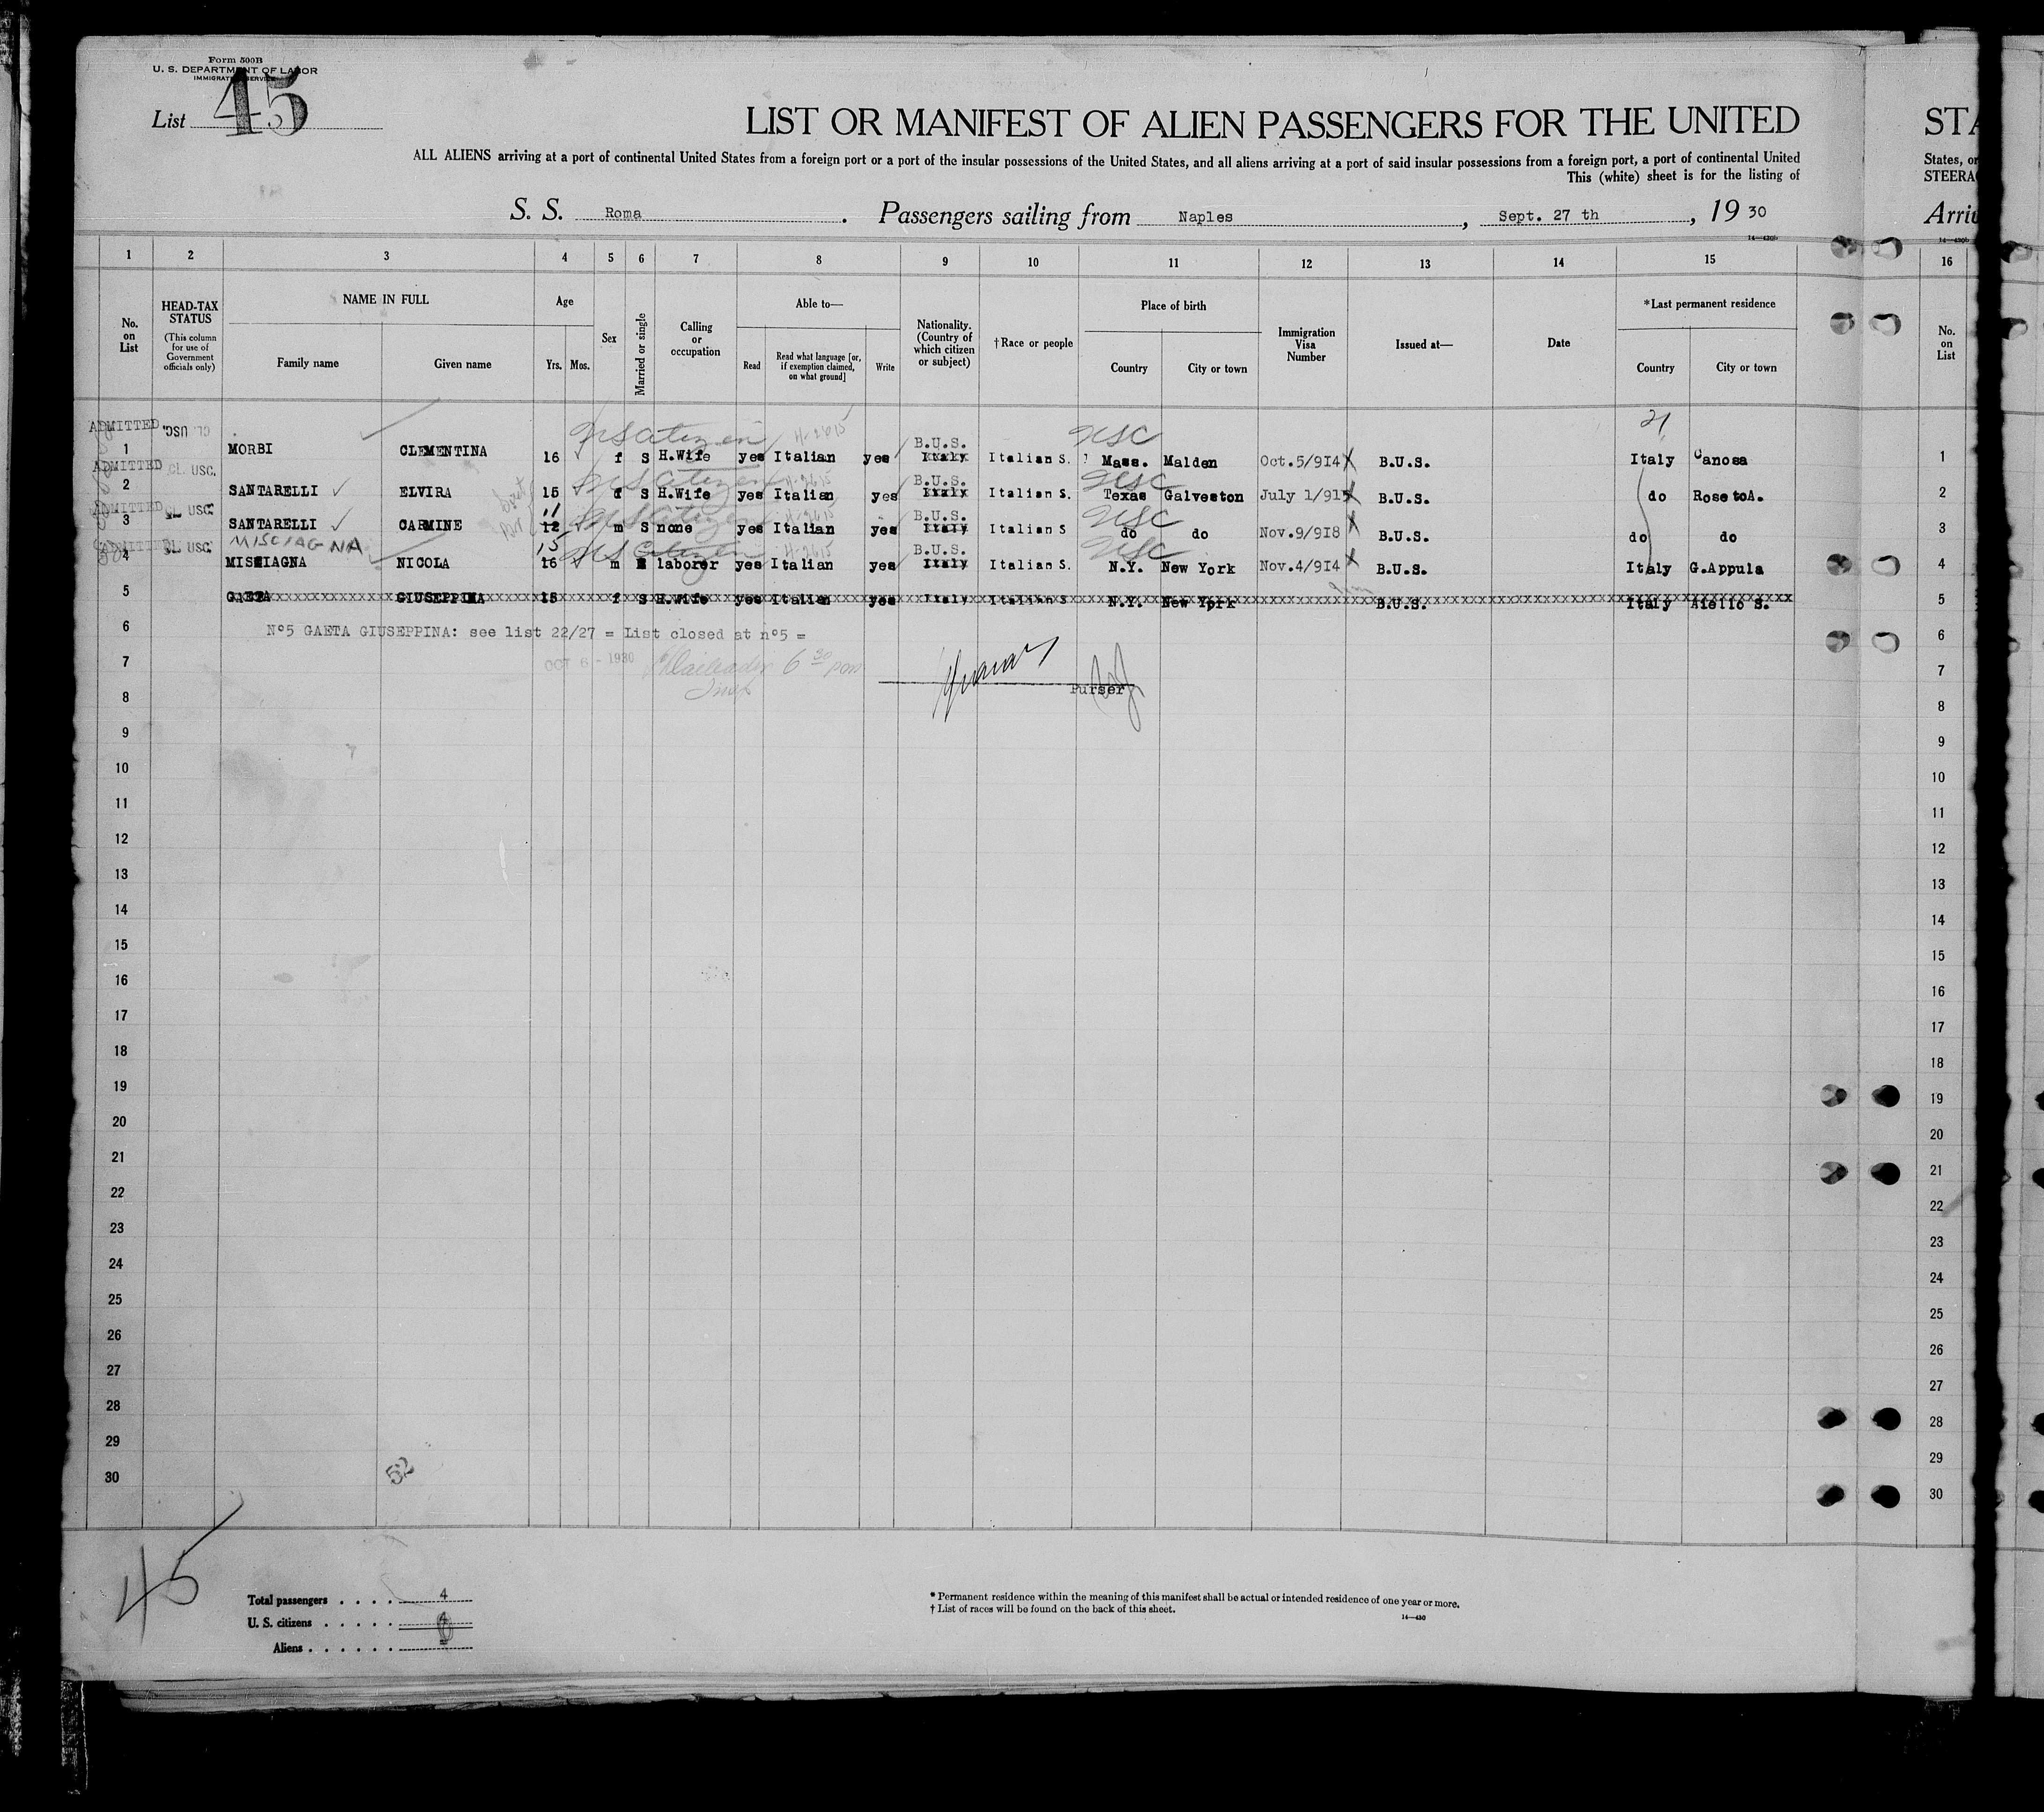 Form 500B
U. S. DEPARTMENT OF LABOR
IMMIGRATION SERVICE
List 45
LIST OR MANIFEST OF ALIEN PASSENGERS FOR THE UNITED STA
ALL ALIENS arriving at a port of continental United States from a foreign port or a port of the insular possessions of the United States, and all aliens arriving at a port of said insular possessions from a foreign port, a port of continental United States, or
This (white) sheet is for the listing of STEERA
S. S. Roma. Passengers sailing from Naples, Sept. 27 th, 19 30 Arri
14—430b
1 2 3 4 5 6 7 8 9 10 11 12 13 14 15 16
No. on List
HEAD-TAX STATUS (This column for use of Government officials only)
NAME IN FULL Family name Given name
Age Yrs. Mos.
Sex
Married or single
Calling or occupation
Able to— Read Read what language [or, if exemption claimed, on what ground] Write
Nationality. (Country of which citizen or subject)
†Race or people
Place of birth Country City or town
Immigration Visa Number
Issued at—
Date
*Last permanent residence Country City or town
No. on List
ADMITTED USC. US citizen H-2615 USC 21
1 MORBI CLEMENTINA 16 f S H.Wife yes Italian yes B.U.S. Italy Italian S. Mass. Malden Oct.5/914 B.U.S. Italy Canosa 1
ADMITTED CL. USC. US citizen H-2615 USC
2 SANTARELLI ELVIRA 15 f S H.Wife yes Italian yes B.U.S. Italy Italian S. Texas Galveston July 1/915 B.U.S. do RosetoA. 2
ADMITTED CL USC. 11 US citizen H-2615 USC
3 SANTARELLI CARMINE 12 m S none yes Italian yes B.U.S. Italy Italian S do do Nov.9/918 B.U.S. do do 3
ADMITTED CL. USC. MISCIAGNA 15 US Citizen H-2615 USC
4 MISCIAGNA NICOLA 16 m S laborer yes Italian yes B.U.S. Italy Italian S. N.Y. New York Nov.4/914 B.U.S. Italy G.Appula 4
5 GAETA GIUSEPPINA 15 f S H.Wife yes Italian yes Italy Italian S N.Y. New York B.U.S. Italy Aiello S. 5
6 Nº5 GAETA GIUSEPPINA: see list 22/27 = List closed at nº5 = 6
7 OCT 6 - 1930 6 30 pm 7
Insp
Purser
8 8
9 9
10 10
11 11
12 12
13 13
14 14
15 15
16 16
17 17
18 18
19 19
20 20
21 21
22 22
23 23
24 24
25 25
26 26
27 27
28 28
29 29
30 30
52
45
Total passengers . . . . 4
U. S. citizens . . . . . 4
Aliens . . . . . .
* Permanent residence within the meaning of this manifest shall be actual or intended residence of one year or more.
† List of races will be found on the back of this sheet.
14—430